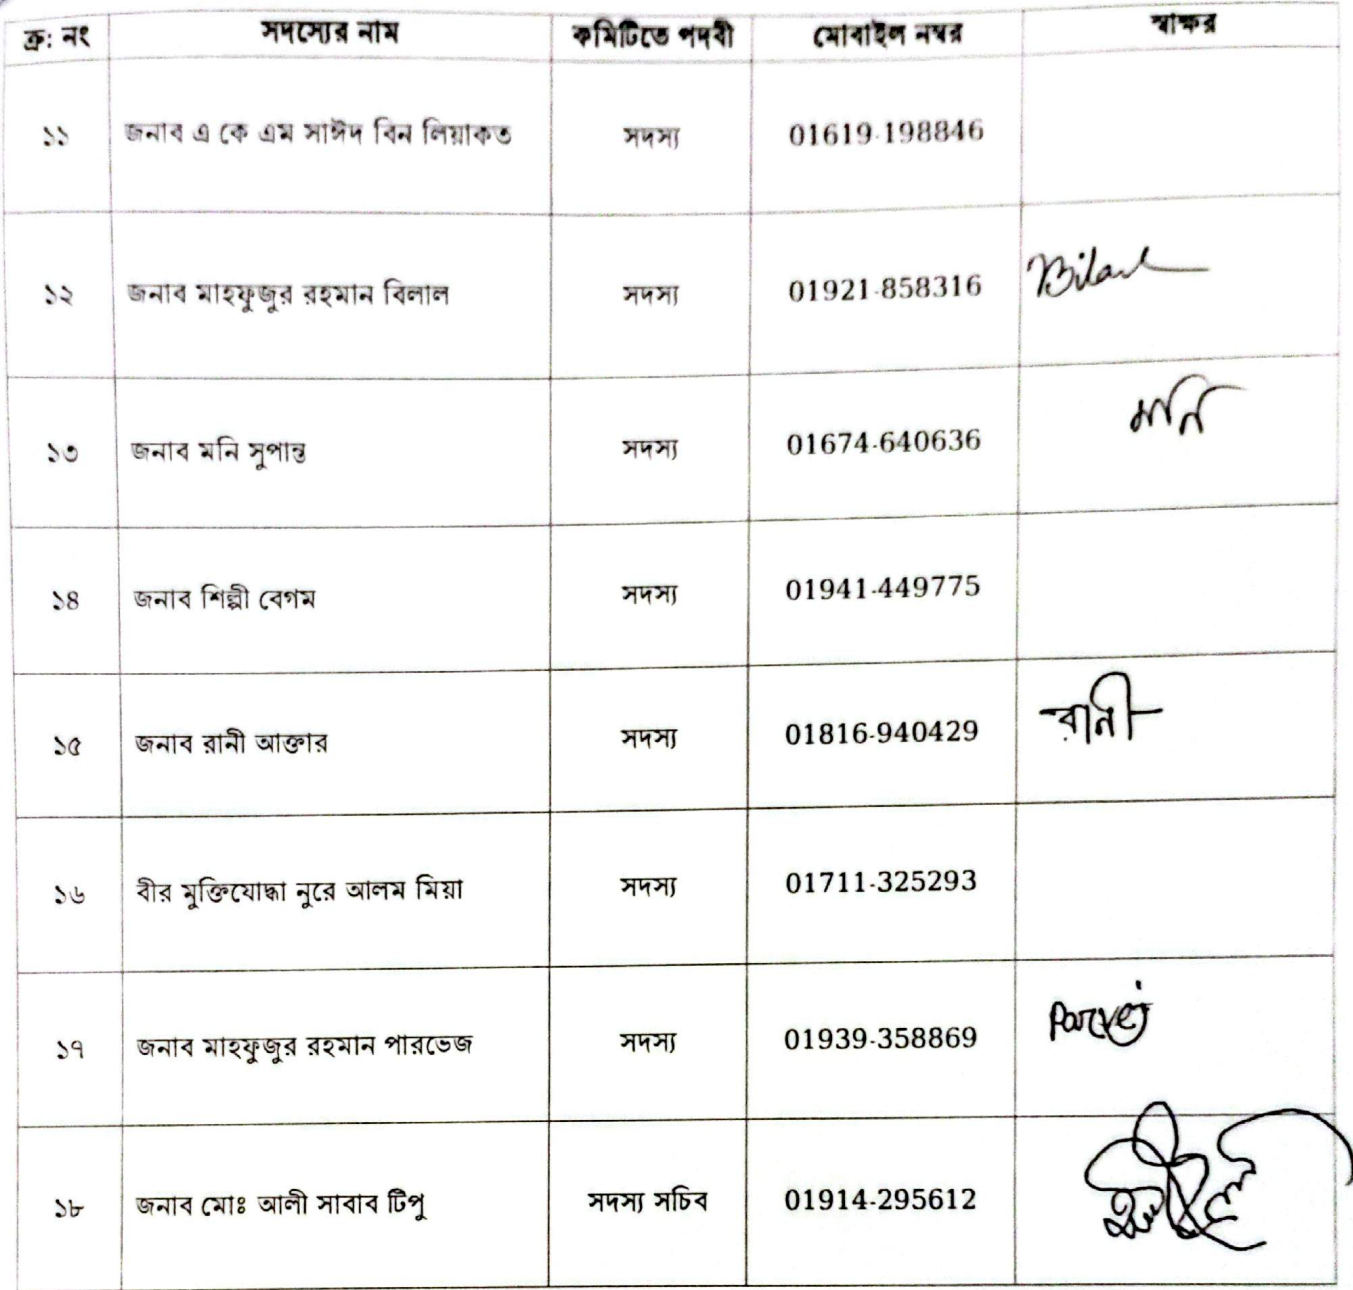 ক্র: নং সদস্যের নাম কমিটিতে পদবী মোবাইল নম্বর স্বাক্ষর
১১ জনাব এ কে এম সাঈদ বিন লিয়াকত সদস্য 01619-198846
১২ জনাব মাহফুজুর রহমান বিলাল সদস্য 01921-858316 Bilal
১৩ জনাব মনি সুপান্ত সদস্য 01674-640636 মনি
১৪ জনাব শিল্পী বেগম সদস্য 01941-449775
১৫ জনাব রানী আক্তার সদস্য 01816-940429 রানী
১৬ বীর মুক্তিযোদ্ধা নুরে আলম মিয়া সদস্য 01711-325293
১৭ জনাব মাহফুজুর রহমান পারভেজ সদস্য 01939-358869 Parvej
১৮ জনাব মোঃ আলী সাবাব টিপু সদস্য সচিব 01914-295612